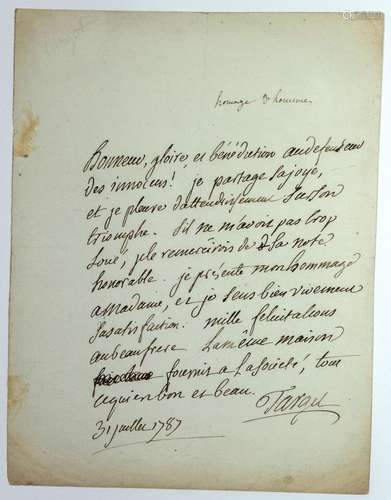 Target
homage d hommes
Bonneur, gloire, et bénédiction au defenseur
des innocens! je partage sa joye,
et je pleure d'attendrissement sur son
triomphe. S'il ne m'avoit pas trop
loué, je le remercirois de sa note
honorable. je presente mon hommage
a Madame, et je sens bien vivement
sa satisfaction. mille felicitations
au beaufrere. La même maison
fournit a la société, tout
ce qui est bon et beau.
Target
31 juillet 1787